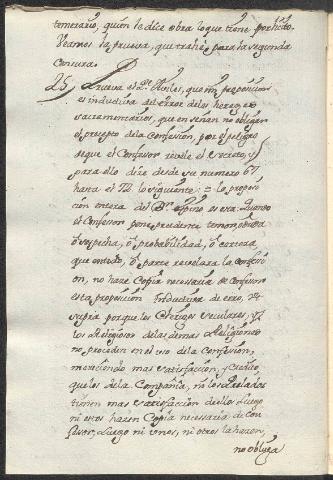 temerario, quien le dice obra lo que tiene perdido.
Veamos la prueva, que trahe para la segunda
Censura.
25, Prueva el Dr. Aviles, que mi proposicion
es inductiva del error de los hereges
sacramentarios, que enseñan no obligar
el precepto de la Confesion, por el peligro
de que el Confesor revele el secreto, y
para ello dice desde su numero 67
hasta el 72 lo siguiente: = la proposi
cion entera del Dr. Espino es esta: Quando
el Confesor pone prudente temor, o duda
o sospecha, o probabilidad, o certeza
que en todo, o parte revelara la confesi
on, no haze Copia necessaria de Confesor
esta proposicion Inductiva de error,
porque los Clerigos seculares, y
los Religiosos de las demas Religiones
no proceden en el uso de la Confesion,
mereciendo mas satisfaccion, y credito,
que los de la Compañia, ni los Prelados
tienen mas satisfaccion de ellos Luego
ni estos hazen Copia necessaria de Con
fesor, Luego ni unos, ni otros la hazen,
no obliga